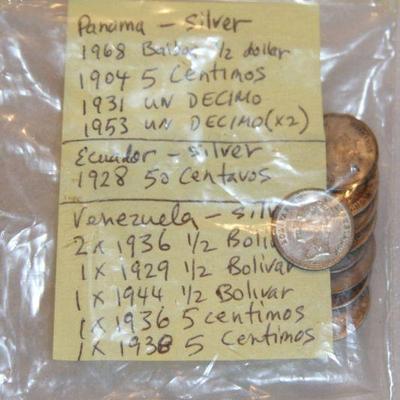 Panama - Silver
1968 Balboa 1/2 dollar
1904 5 Centimos
1931 UN DECIMO
1953 UN DECIMO (x2)
Ecuador - silver
1928 50 Centavos
Venezuela - silv
2 x 1936 1/2 Boliv
1 x 1929 1/2 Bolivar
1 x 1944 1/2 Bolivar
1 x 1936 5 centimos
1 x 1938 5 Centimos